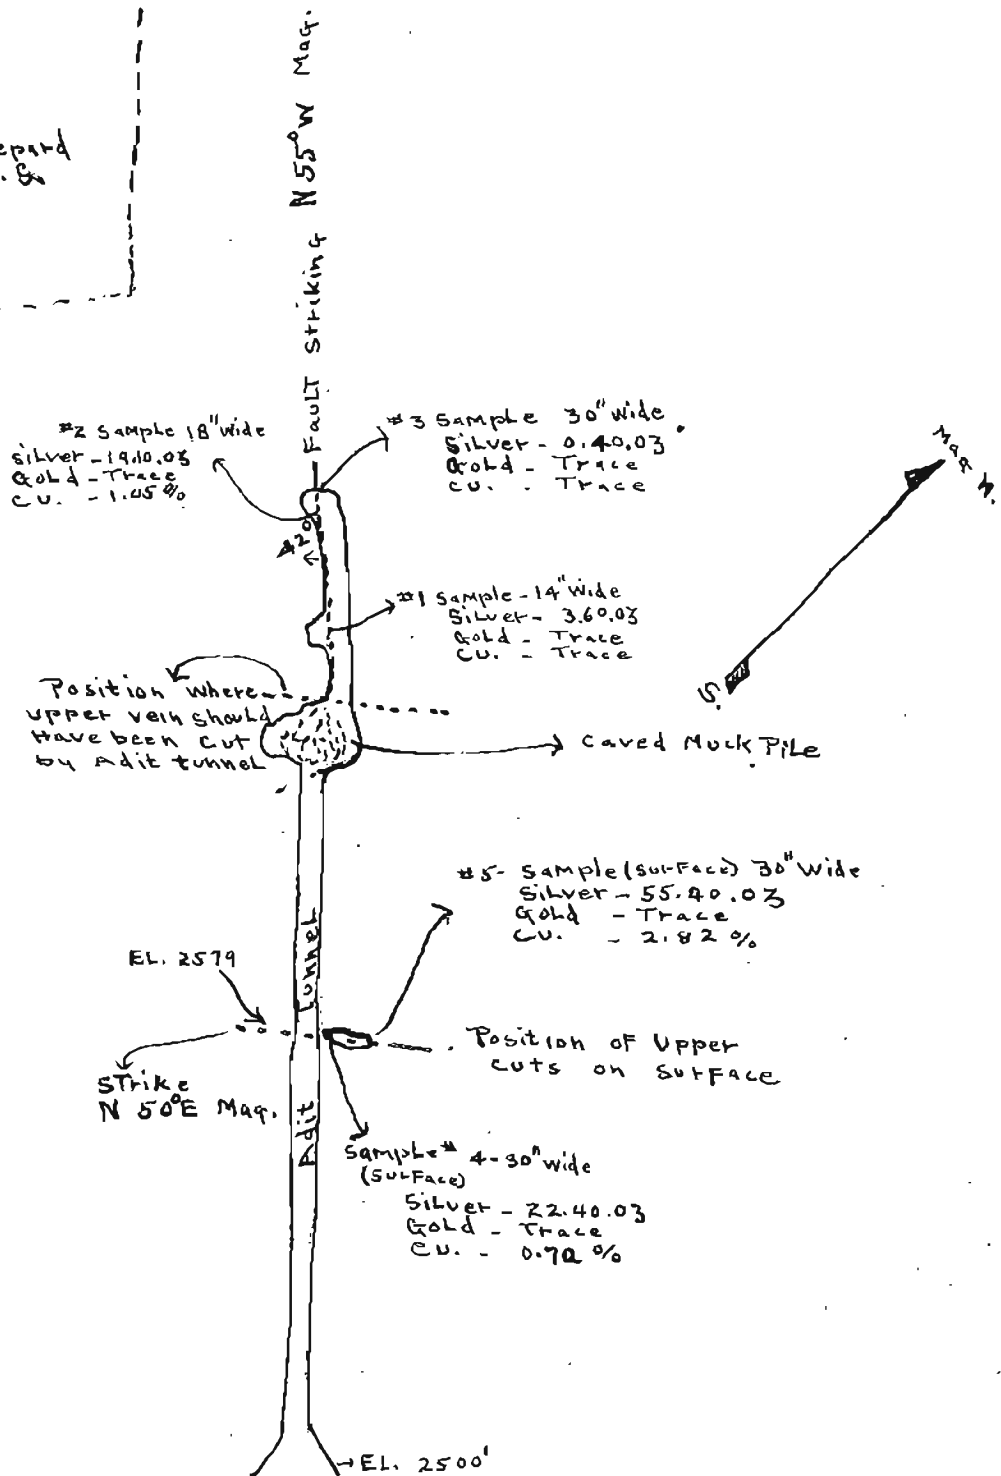 epard
Fault Striking N55°W Mag.
#2 Sample 18" Wide
Silver - 19.10.03
Gold - Trace
Cu. - 1.45 %
#3 Sample 30" Wide
Silver - 0.40.03
Gold - Trace
Cu. - Trace
42°
Mag N.
S.
#1 Sample - 14" Wide
Silver - 3.60.03
Gold - Trace
Cu. - Trace
Position Where
upper vein should
Have been Cut
by Adit tunnel
Caved Muck Pile
#5 - Sample (Surface) 30" Wide
Silver - 55.40.03
Gold - Trace
Cu. - 2.82 %
EL. 2579
Adit Tunnel
Position of Upper
cuts on Surface
Strike
N 50°E Mag.
Sample # 4 - 30" Wide
(Surface)
Silver - 22.40.03
Gold - Trace
Cu. -
EL. 2500'